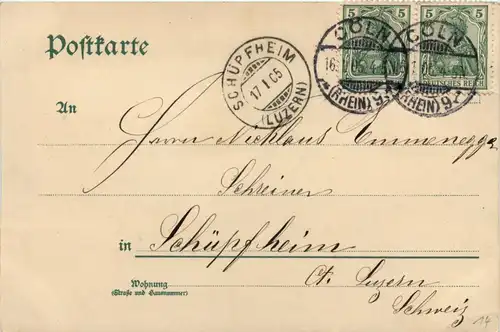 Postkarte
5 5
CÖLN
CÖLN
16.
(RHEIN) 9
(RHEIN) 9
SCHÜPFHEIM
17 I 05
(LUZERN)
An
Herrn Nicklaus Emmenegger
Schreiner
in Schüpfheim
Wohnung
(Straße und Hausnummer)
Ct. Luzern
Schweiz
14